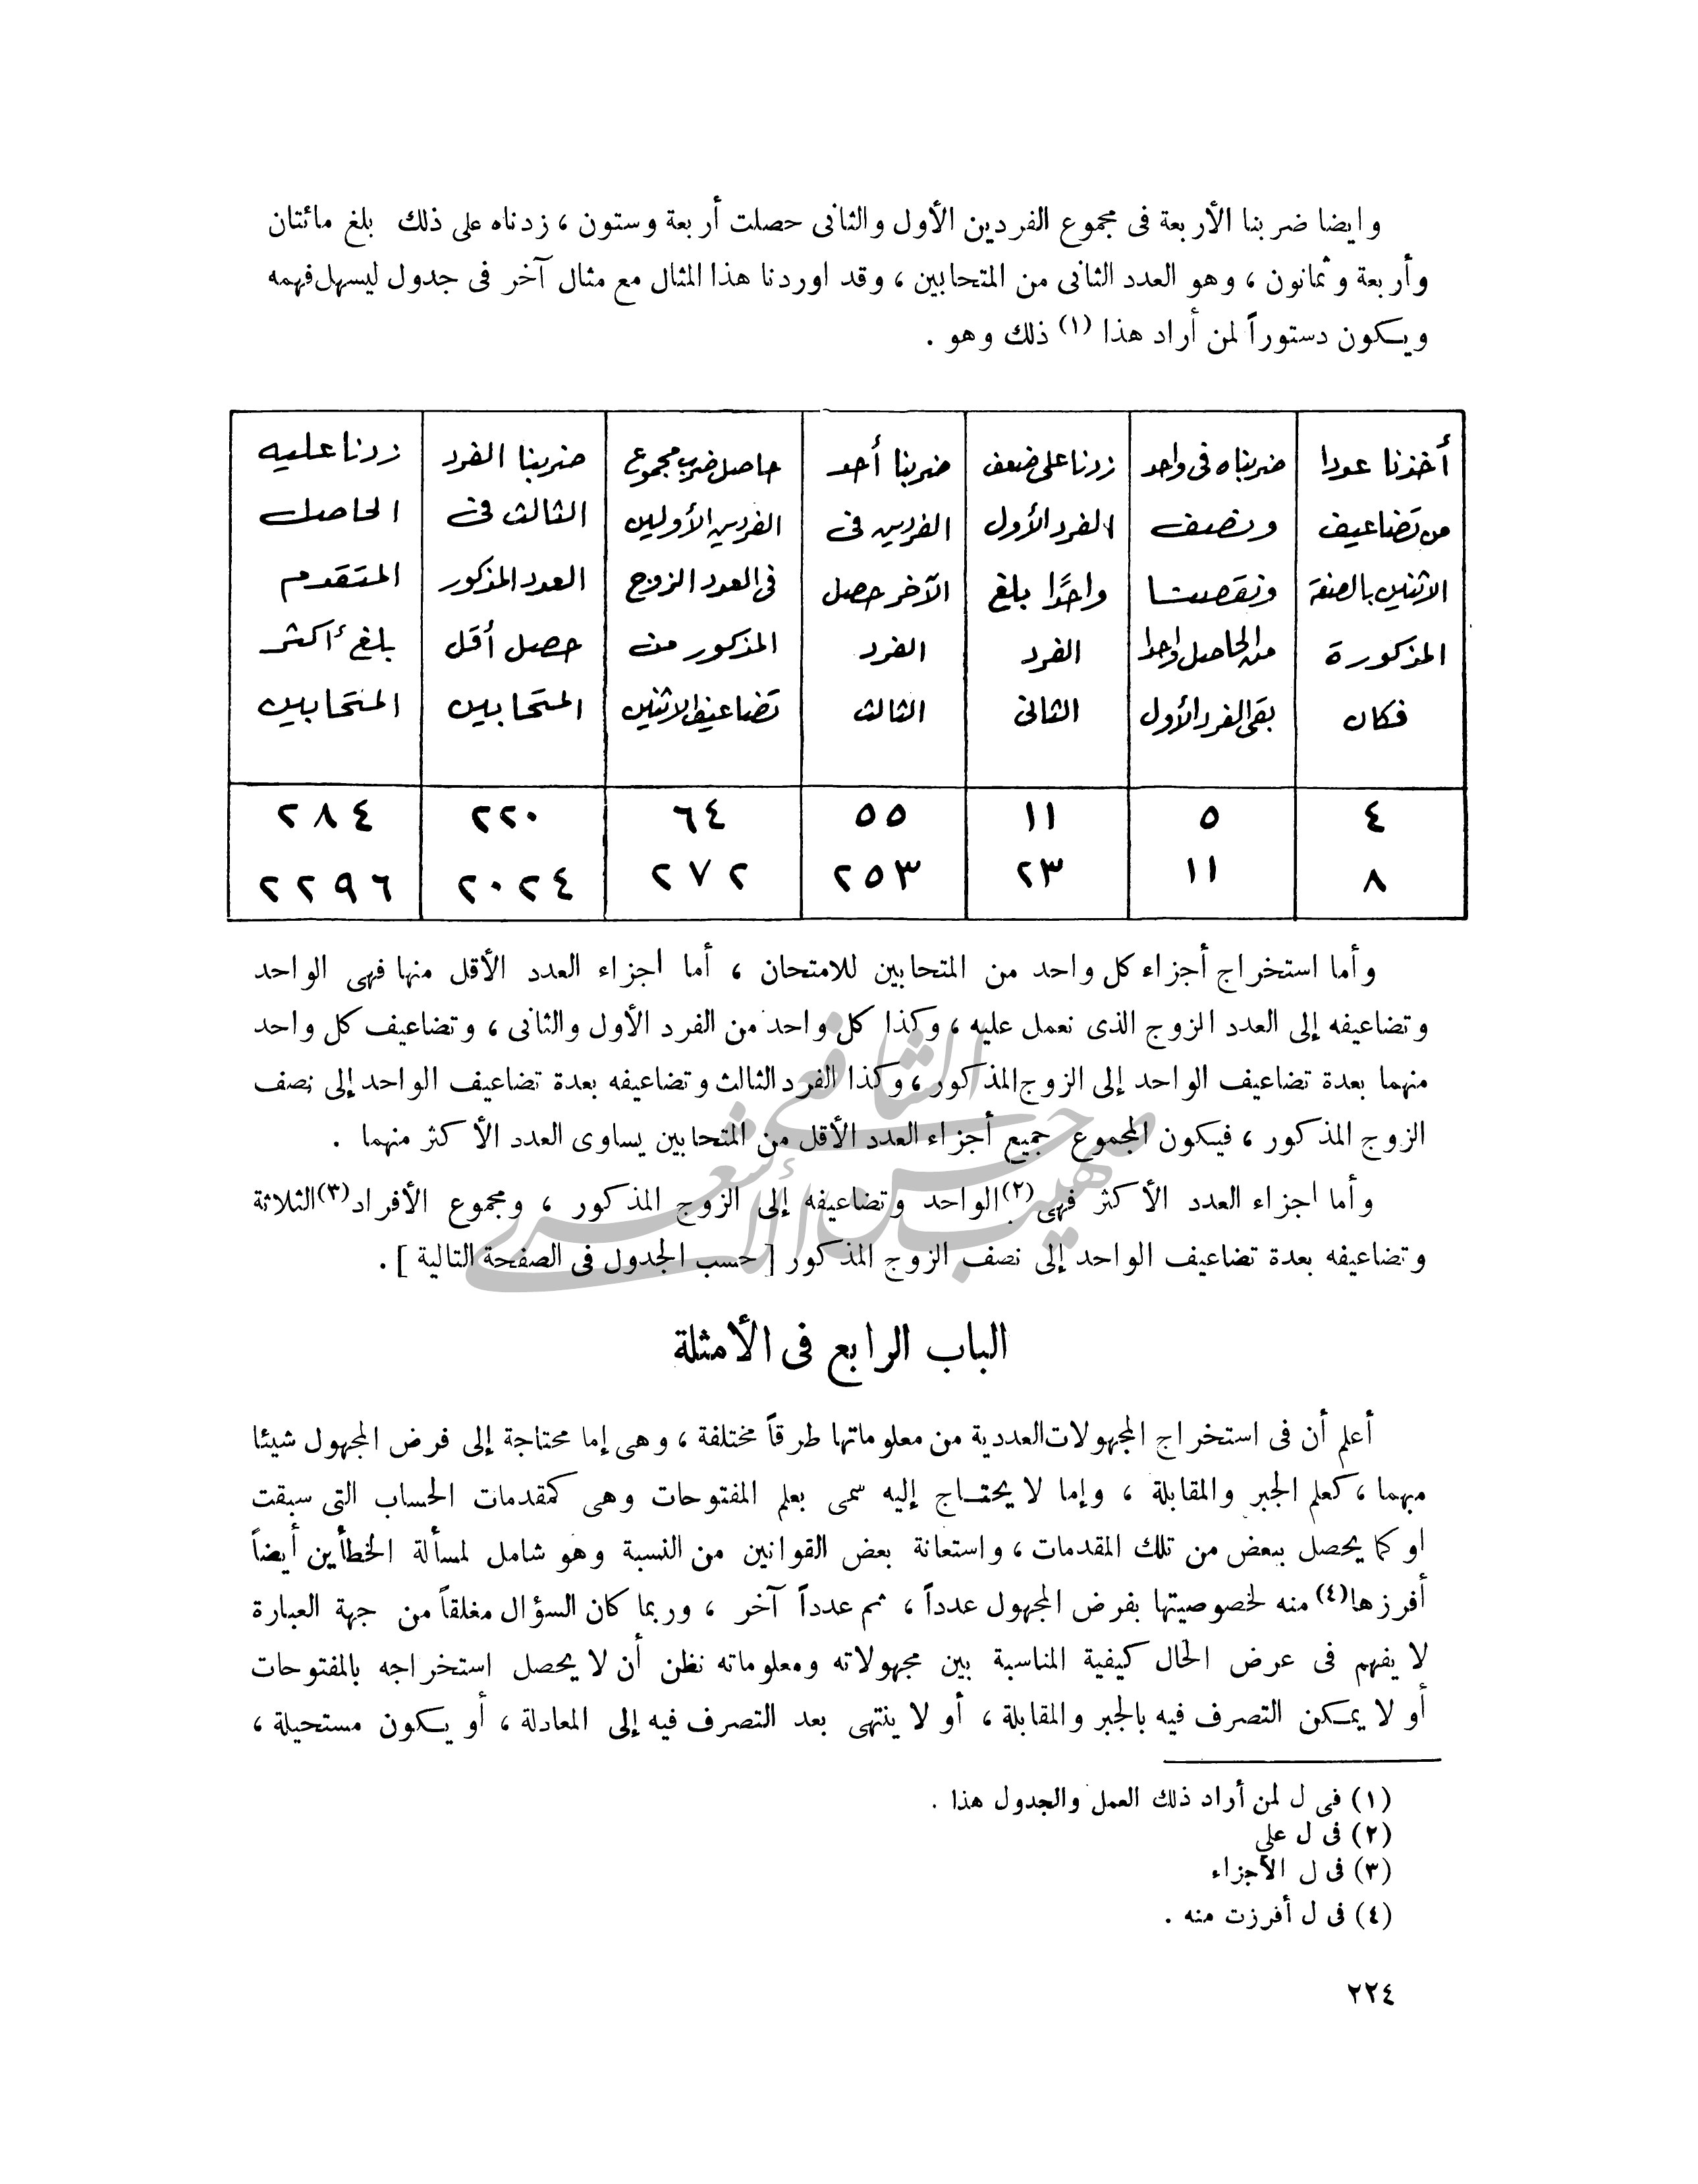 وايضا ضربنا الأربعة فى مجموع الفردين الأول والثانى حصلت أربعة وستون ، زدناه على ذلك بلغ مائتان
وأربعة وثمانون ، وهو العدد الثانى من المتحابين ، وقد اوردنا هذا المثال مع مثال آخر فى جدول ليسهل فهمه
ويكون دستوراً لمن أراد هذا (١) ذلك وهو .
أخذنا عددا
من تضاعيف
الاثنين بالصفة
المذكورة
فكان
ضربناه فى واحد
ونصف
ونقصت
من الحاصل واحدا
بقى الفرد الأول
زدنا على ضعف
الفرد الأول
واحدًا بلغ
الفرد
الثانى
ضربنا أحد
الفردين فى
الآخر حصل
الفرد
الثالث
حاصل ضرب مجموع
الفردين الأولين
فى العدد الزوج
المذكور من
تضاعيف الاثنين
ضربنا الفرد
الثالث فى
العدد المذكور
حصل أقل
المتحابين
زدنا عليه
الحاصل
المتقدم
بلغ أكثر
المتحابين
٤ ٥ ١١ ٥٥ ٦٤ ٢٢٠ ٢٨٤
٨ ١١ ٢٣ ٢٥٣ ٢٧٢ ٢٠٢٤ ٢٢٩٦
وأما استخراج أجزاء كل واحد من المتحابين للامتحان ، أما اجزاء العدد الأقل منها فهى الواحد
وتضاعيفه إلى العدد الزوج الذى نعمل عليه ، وكذا كل واحد من الفرد الأول والثانى ، وتضاعيف كل واحد
منهما بعدة تضاعيف الواحد إلى الزوج المذكور ، وكذا الفرد الثالث وتضاعيفه بعدة تضاعيف الواحد إلى نصف
الزوج المذكور ، فيكون المجموع جميع أجزاء العدد الأقل من المتحابين يساوى العدد الأكثر منهما .
وأما اجزاء العدد الأكثر فهى (٢) الواحد وتضاعيفه إلى الزوج المذكور ، ومجموع الأفراد (٣) الثلاثة
وتضاعيفه بعدة تضاعيف الواحد إلى نصف الزوج المذكور [ حسب الجدول فى الصفحة التالية ] .
الباب الرابع فى الأمثلة
أعلم أن فى استخراج المجهولات العددية من معلوماتها طرقاً مختلفة ، وهى إما محتاجة إلى فرض المجهول شيئا
مبهما ، كعلم الجبر والمقابلة ، وإما لا يحتاج إليه سمى بعلم المفتوحات وهى كمقدمات الحساب التى سبقت
او كما يحصل ببعض من تلك المقدمات ، واستعانة بعض القوانين من النسبة وهو شامل لمسألة الخطأين أيضاً
أفرزها (٤) منه لخصوصيتها بفرض المجهول عدداً ، ثم عدداً آخر ، وربما كان السؤال مغلقاً من جهة العبارة
لا يفهم فى عرض الحال كيفية المناسبة بين مجهولاته ومعلوماته نظن أن لا يحصل استخراجه بالمفتوحات
أو لا يمكن التصرف فيه بالجبر والمقابلة ، أو لا ينتهى بعد التصرف فيه إلى المعادلة ، أو يكون مستحيلة ،
(١) فى ل لمن أراد ذلك العمل والجدول هذا .
(٢) فى ل على
(٣) فى ل الأجزاء
(٤) فى ل أفرزت منه .
٢٢٤